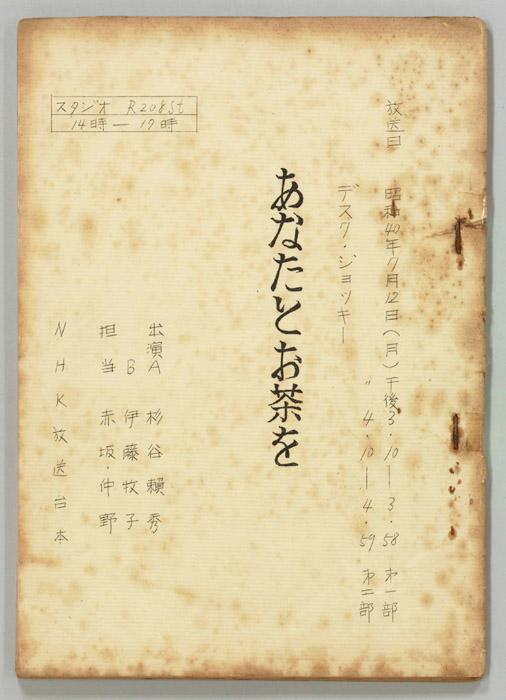 放送日 昭和40年7月12日(月)午後3.10―3.58 オ一部
〃 4.10―4.59 オ二部
デスク・ジョッキー
あなたとお茶を
スタジオ R208St
14時―17時
出演A 杉谷頼秀
B 伊藤牧子
担当 赤坂・仲野
NHK放送台本